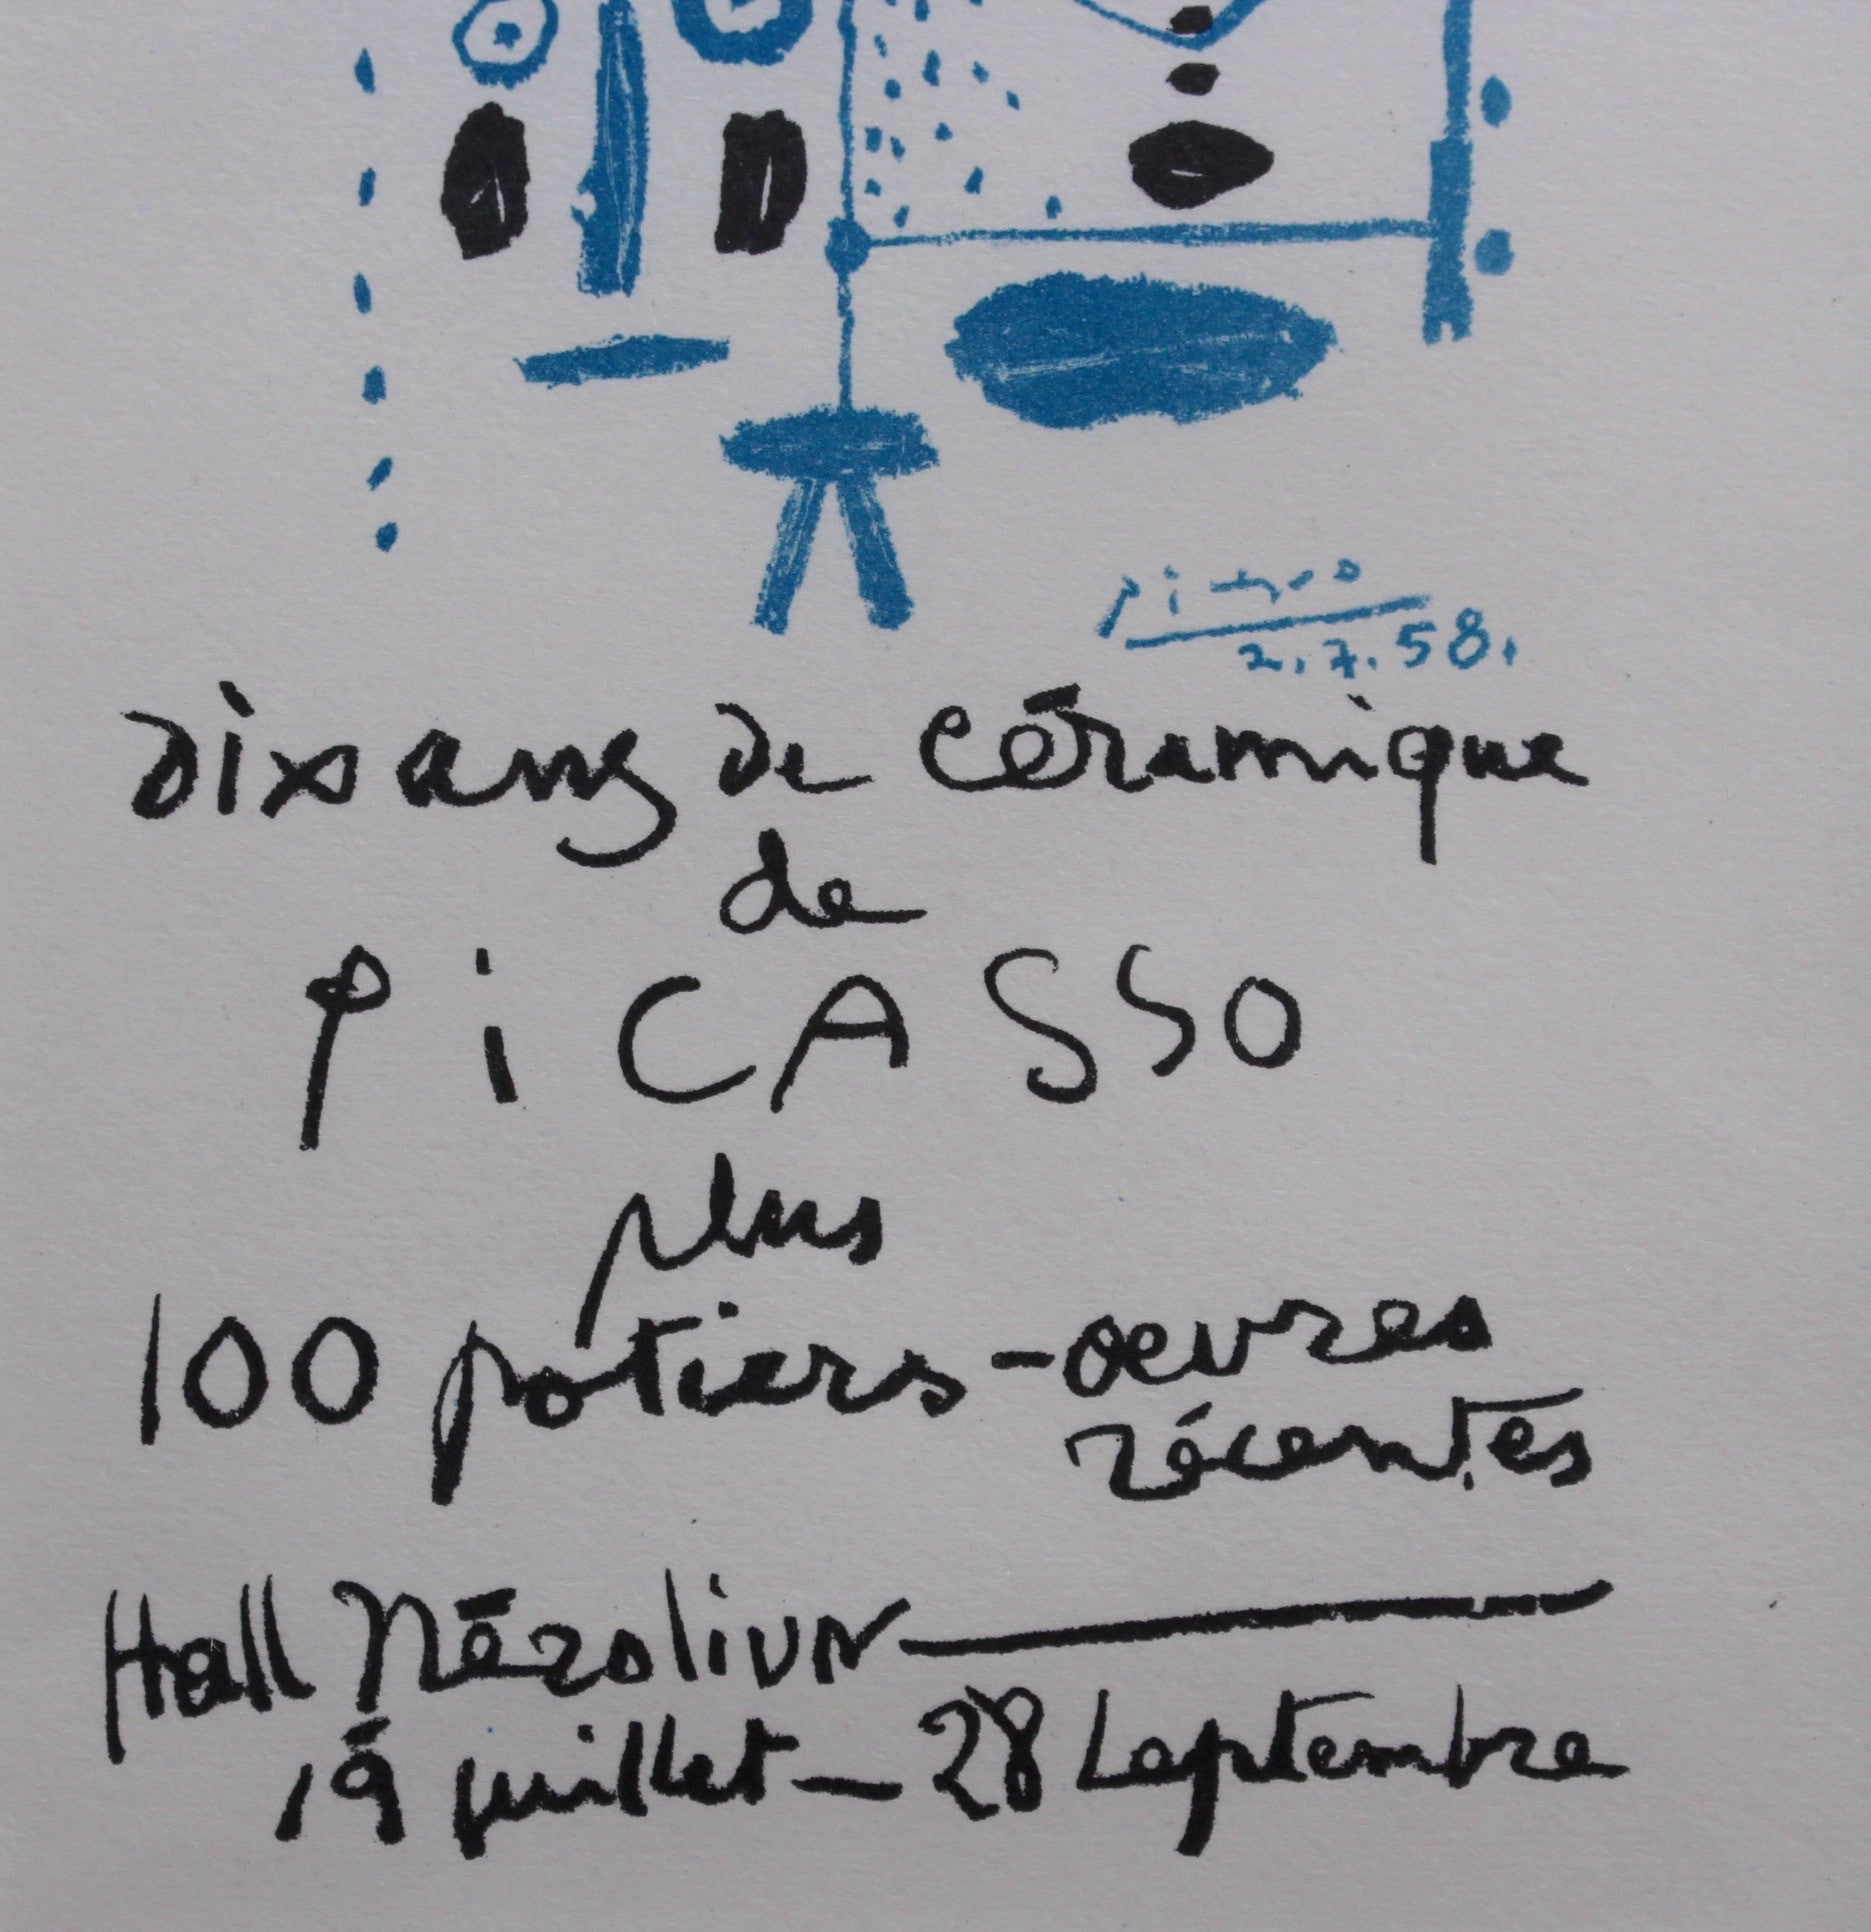 Picasso
2.7.58.
Dix ans de céramique
de
PiCASSO
plus
100 potiers - oeuvres
récentes
Hall Nérolium
19 juillet - 28 Septembre